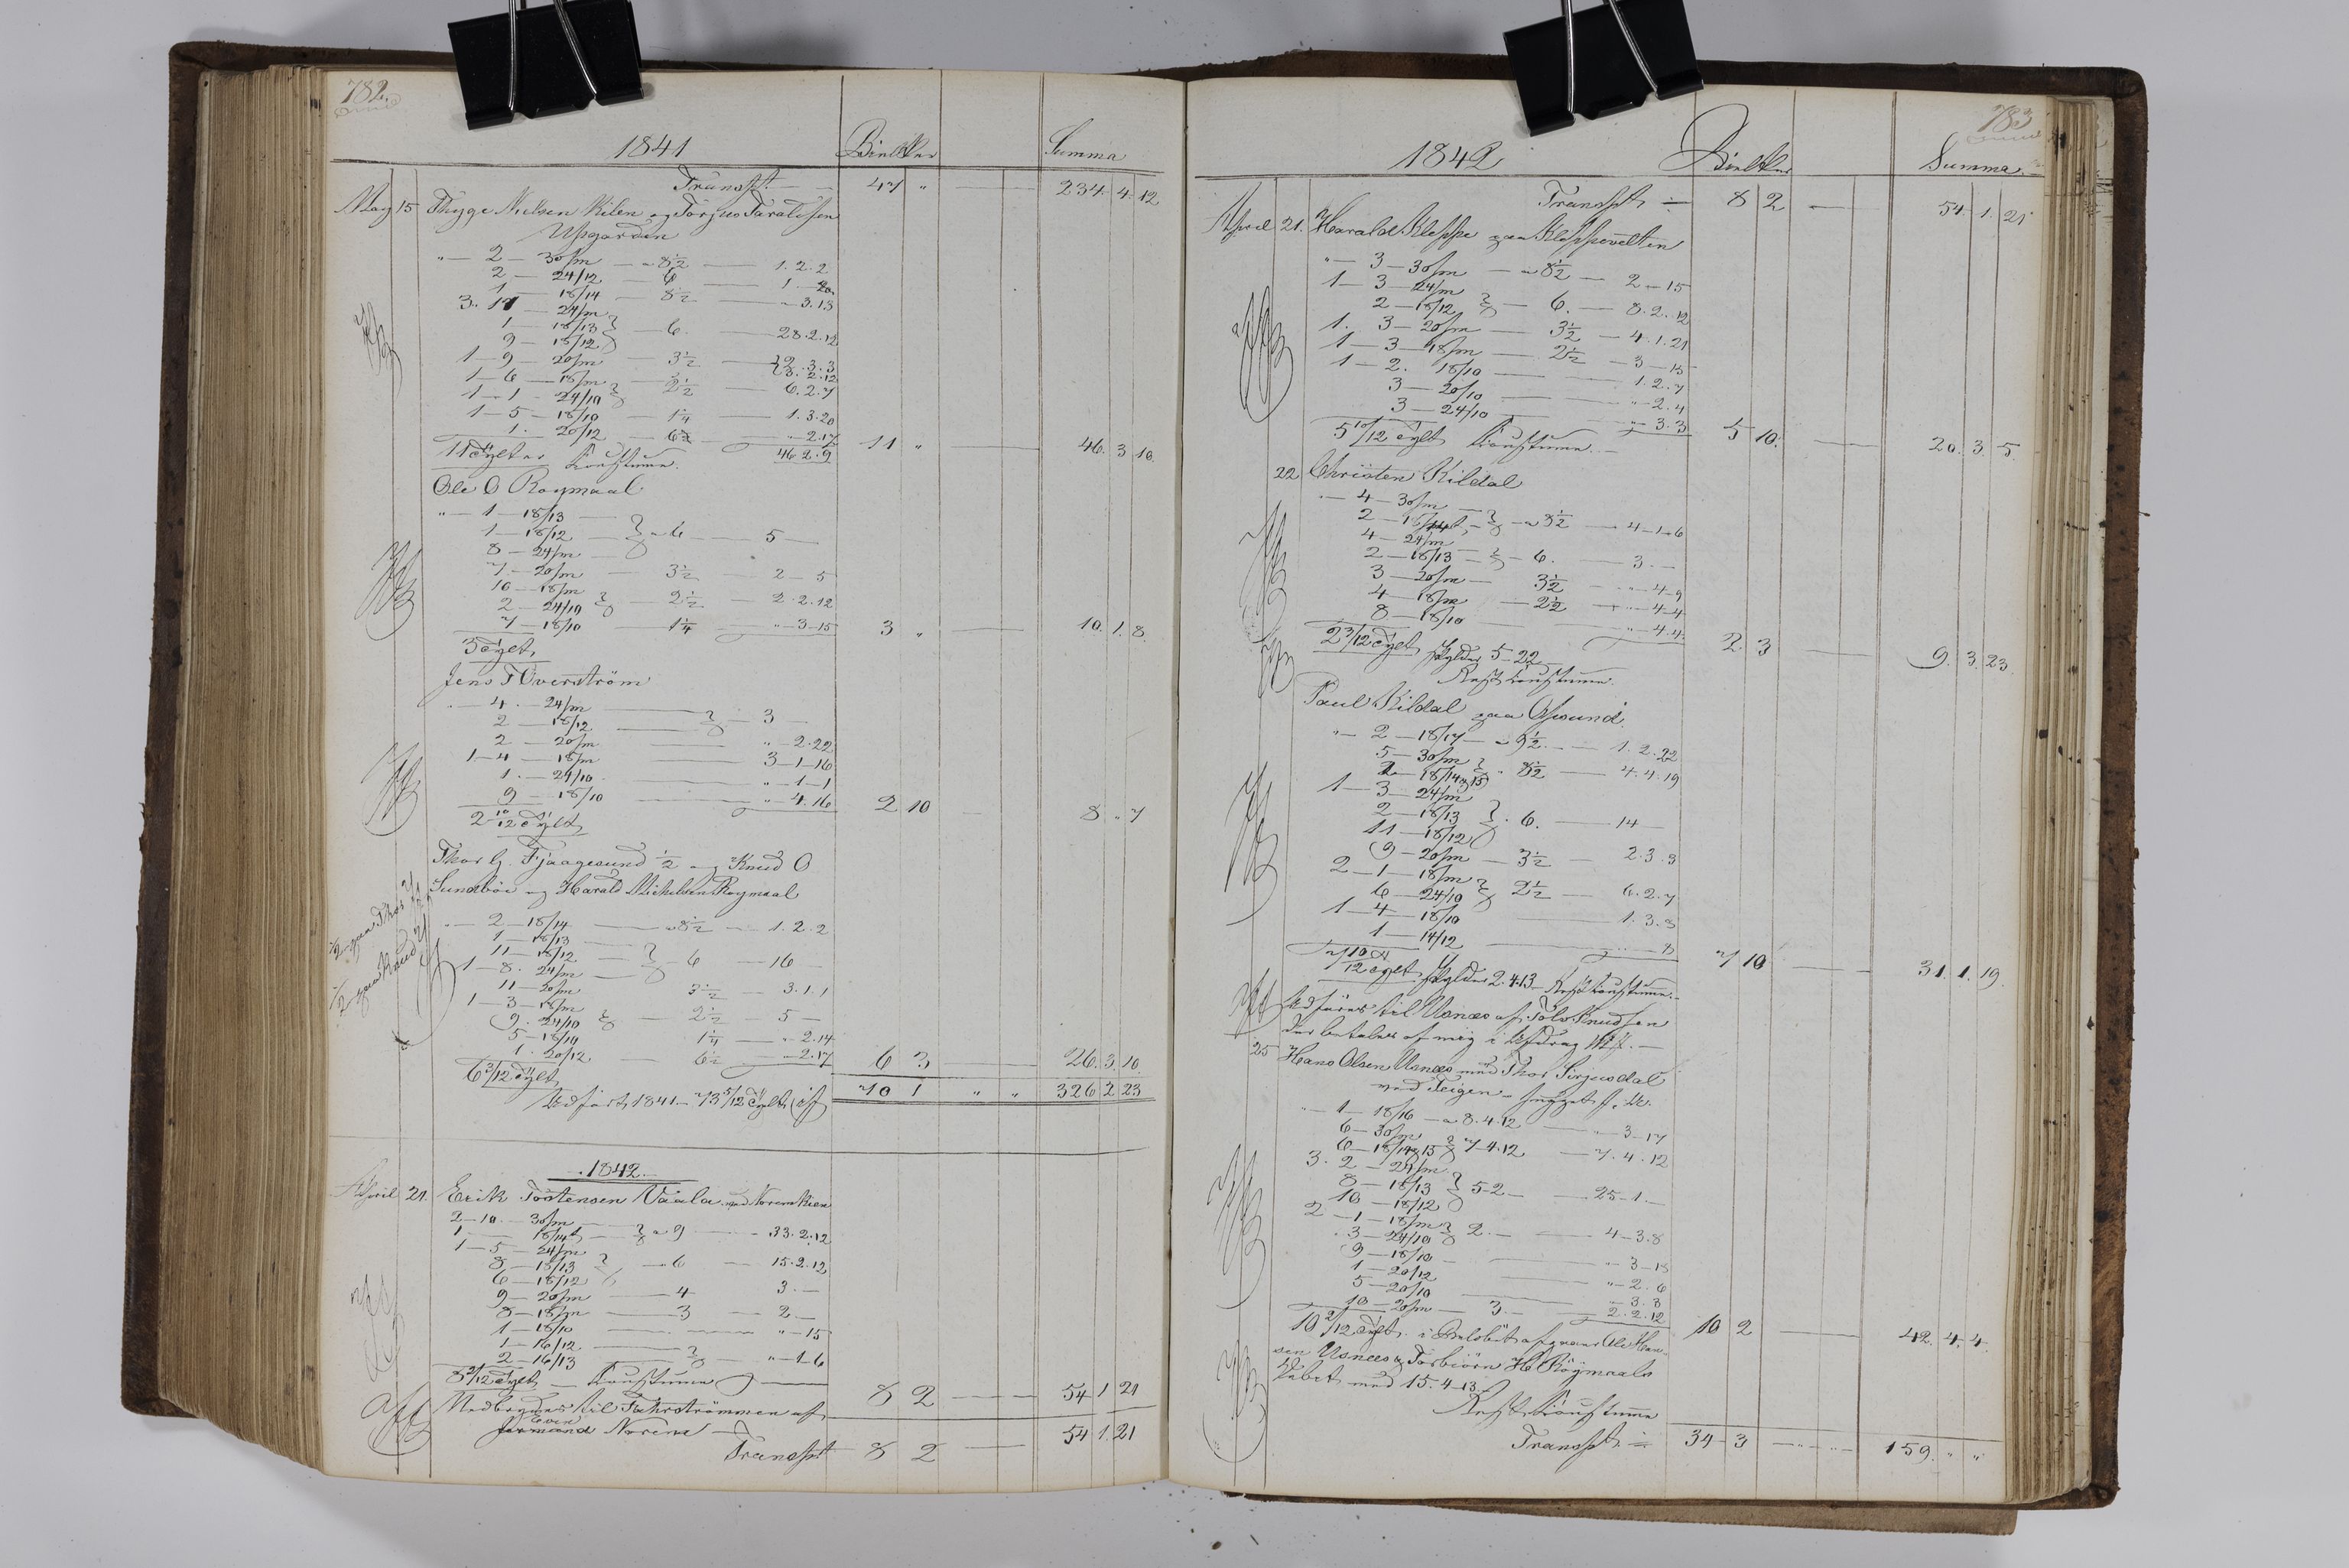 782.
1841 Bielkker Summa
Transpt. — 47 " — 234. 4. 12
May 15 Thyge Nielsen Kilen og Torjus Taraldsen
Upgarden
"— 2 — 30/m — a 8½ — 1. 2. 2
2 — 24/12 — 6 — 1. — 20.
1 — 18/14 — 8½ — " 3. 13
3. 11 — 24/m
1 — 18/13 } — 6. — 28. 2. 12
9 — 18/12
1 — 9 — 20/m — 3½ — 2. 3. 3
1 — 6 — 18/m } 2½ — 6. 2. 7
1 — 1 — 24/10
1 — 5 — 18/10 — 1¼ — 1. 3. 20
1. 20/12 — 6½ — " 2. 17
11 Tylter 46 2. 9 11 " — 46. 3 10.
Ole O Roymaal
"— 1 — 18/13 —
1 — 18/12 — } a 6 — 5 —
8 — 24/m —
7 — 20/m — 3½ 2 — 5
10 — 18/m
2 — 24/10 } — 2½ — 2. 2. 12
7 — 18/10 — 1¼ " — 3 — 15 3 " — 10. 1. 8.
3 Tylt,
Jens T Overström
— 4. — 24/m —
2 — 18/12 — } 3 —
2 — 20/m — " — 2. 22
1 — 4 — 18/m — 3 — 1 — 16
1. — 24/10 — " — 1 — 1
9 — 18/10 — " — 4. 16 2 10 8 " 7
2 10/12 Tylt,
Thor G. Fjaagesund ½ og Knud O
Sundböe og Harald Michelsen Roymaal
½ paa Thor
½ paa Knud
— 2 — 18/14 — a 8½ — 1. 2. 2
1 — 18/13 —
11 — 18/12 — } — 6 — 16 —
1 — 8. 24/m —
11 — 20/m 3½ — 3. 1. 1
1 — 3 — 18/m
9. 24/10 } — 2½ — 5 —
5 — 18/10 1¼ — " 2. 14
1. 20/12 — 6½ — " 2. 17 6 3 — 26. 3. 10.
6 3/12 Tylt
Udfört 1841 — 73 5/12 Tylt 70 1 " " 326 2 23
1842.
April 21. Erik Tostensen Vaala
2 — 10. — 30/m —
1 — 18/14 — } a 9 — 33. 2. 12
1 — 5 — 24/m
8 — 18/13 } — 6 — 15. 2. 12
6 — 18/12
9 — 20/m — 4 3. —
8 — 18/m — 3 — 2 —
1 — 18/10 — " — 15
1 — 16/12 —
2 — 16/13 } — " — 1 — 6
8 2/12 Tylt 8 2 — 54 1 21
til Fiskströmmen af
Even
Norene — 54 1. 21
Transpt 8 2 —
783
1842 Bielkker Summa.
Transpt. — 8 2 — 54. 1. 21
April 21. Harald Kleppe paa Kleppevelten
"— 3 — 30/m — a 8½ — 2 — 15
1 — 3 — 24/m
2 — 18/12 } — 6. — 8. 2. 12
1. 3 — 20/m — 3½ — 4. 1. 21
1 — 3 — 18/m — 2½ — 3 — 15
1 — 2. 18/10 — 1. 2. 7
3 — 20/10 — " — 2. 4
3 — 24/10 — " 3. 3
5 10/12 Tylt 5 10. — 20. 3. 5.
22 Christen Kildal
— 4 — 30/m —
2 — 18/14 — } — a 8½ — 4 — 1 — 6
4 — 24/m
2 — 18/13 — } — 6. — 3. —
3 — 20/m — 3½ — " 4 — 9
4 — 18/m — 2½ — " — 4 — 4
8 — 18/10 — " — 4. 4.
2 3/12 Tylt skylder 5 — 22 2. 3 — 9. 3. 23
Paul Kildal paa Åsund
"— 2 — 18/17 — a 9½ — 1. 2. 22
5 — 30/m
2 — 18/14 og 15 } " 8½ — 4. 4. 19
1 — 3 — 24/m
2 — 18/13 } . 6. — 14 —
11 — 18/12
9 — 20/m — 3½ — 2. 3. 3
2 — 1 — 18/m
6 — 24/10 } 2½ — 6. 2. 7
1 — 4 — 18/10 — 1. 3. 3
1 — 14/12 — 8
7 10/12 Tylt skylder 2. 4. 13 7 10 — 31. 1. 19.
Udföres til Usnæs af Tolv Knudsen
der betales af mig i Afdrag
25 Hans Olsen Usnæs med Thor Sirjusdal
ved Teigen
"— 1 — 18/16 — a 8. 4. 12 — " 3 — 17
6 — 30/m
6 — 18/14 og 15 } 7. 4. 12 — 7. 4. 12
3. 2 — 24/m
8 — 18/13 } 5 — 2 — 25 — 1. —
10 — 18/12
2 — 1 — 18/m
3 — 24/10 } 2. — 4 — 3. 8
9 — 18/10 — " — 3 — 18
1 — 20/12 — " — 2. 6
5 — 20/10 — " 3. 3
10 — 20/m — 3. — 2. 2. 12
10 2/12 Tylt. Ole Han- 10 2 — 42. 4. 4.
sen Usnæs & Torbiörn H. Röymaals
Debet med 15. 4. 13.
Transpt. 34 3 — 159. " "